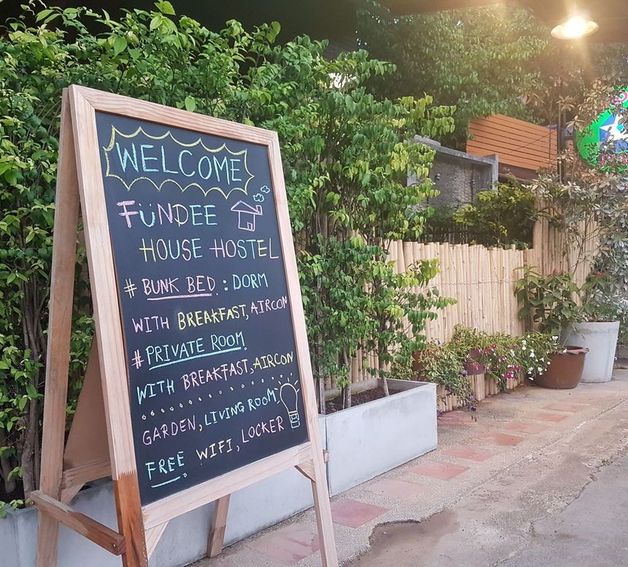 WELCOME
FüNDEE
HOUSE HOSTEL
# BUNK BED : DORM
WITH BREAKFAST, AIRCON
# PRIVATE ROOM
WITH BREAKFAST, AIRCON
GARDEN, LIVING ROOM
FREE WIFI, LOCKER